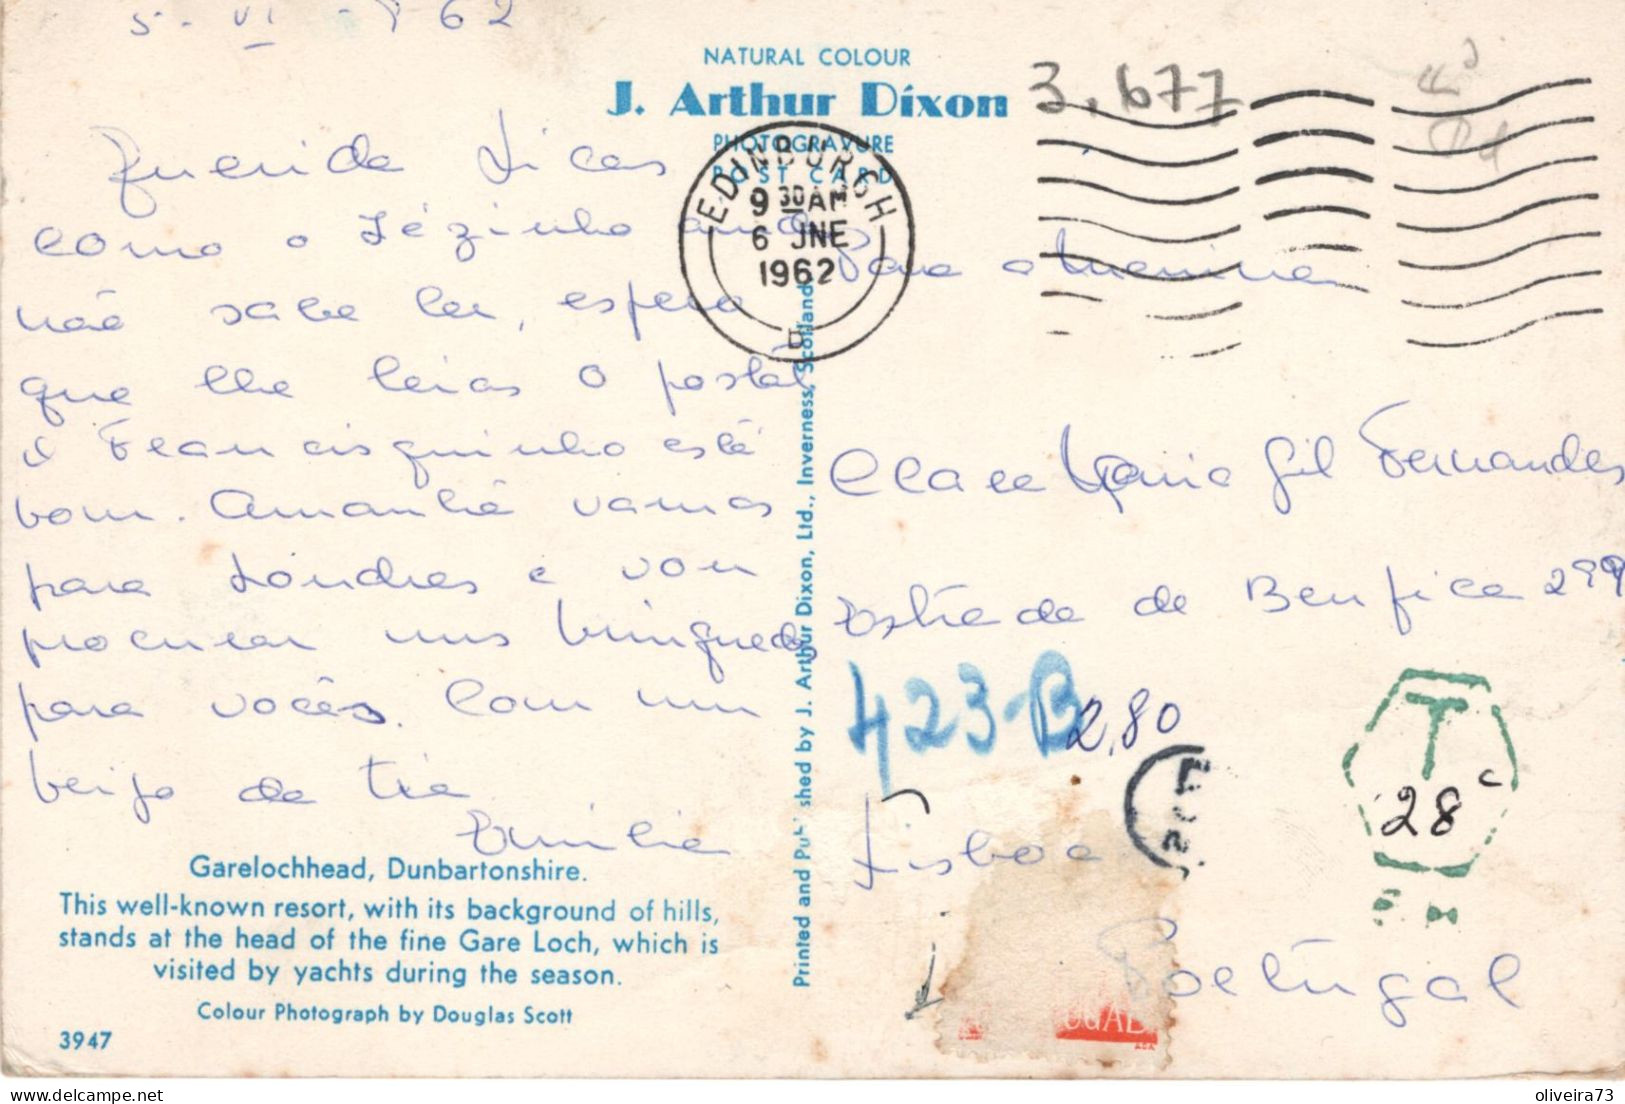 5-VI-962
NATURAL COLOUR
J. Arthur Dixon
PHOTOGRAVURE
POST CARD
3.677
EDINBURGH
9 30 AM
6 JNE
1962
B
Querida
como o Zézinho ainda
não sabe ler, espero
que lhe leias o postal
o Francisquinho está
bom. Amanhã vamos
para Londres e vou
procurar uns brinquedos
para vocês. Com um
beijo da tia
Emília
Garelochhead, Dunbartonshire.
This well-known resort, with its background of hills,
stands at the head of the fine Gare Loch, which is
visited by yachts during the season.
Colour Photograph by Douglas Scott
3947
Printed and Published by J. Arthur Dixon, Ltd., Inverness, Scotland
Para a menina
Clara Maria Gil Fernandes
Estrada de Benfica 299
423-B
2,80
T
28 c
Lisboa
Portugal
oliveira73